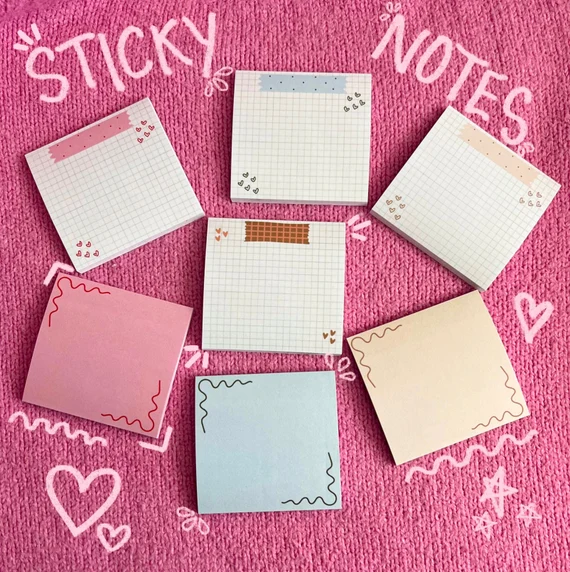 STICKY
NOTES